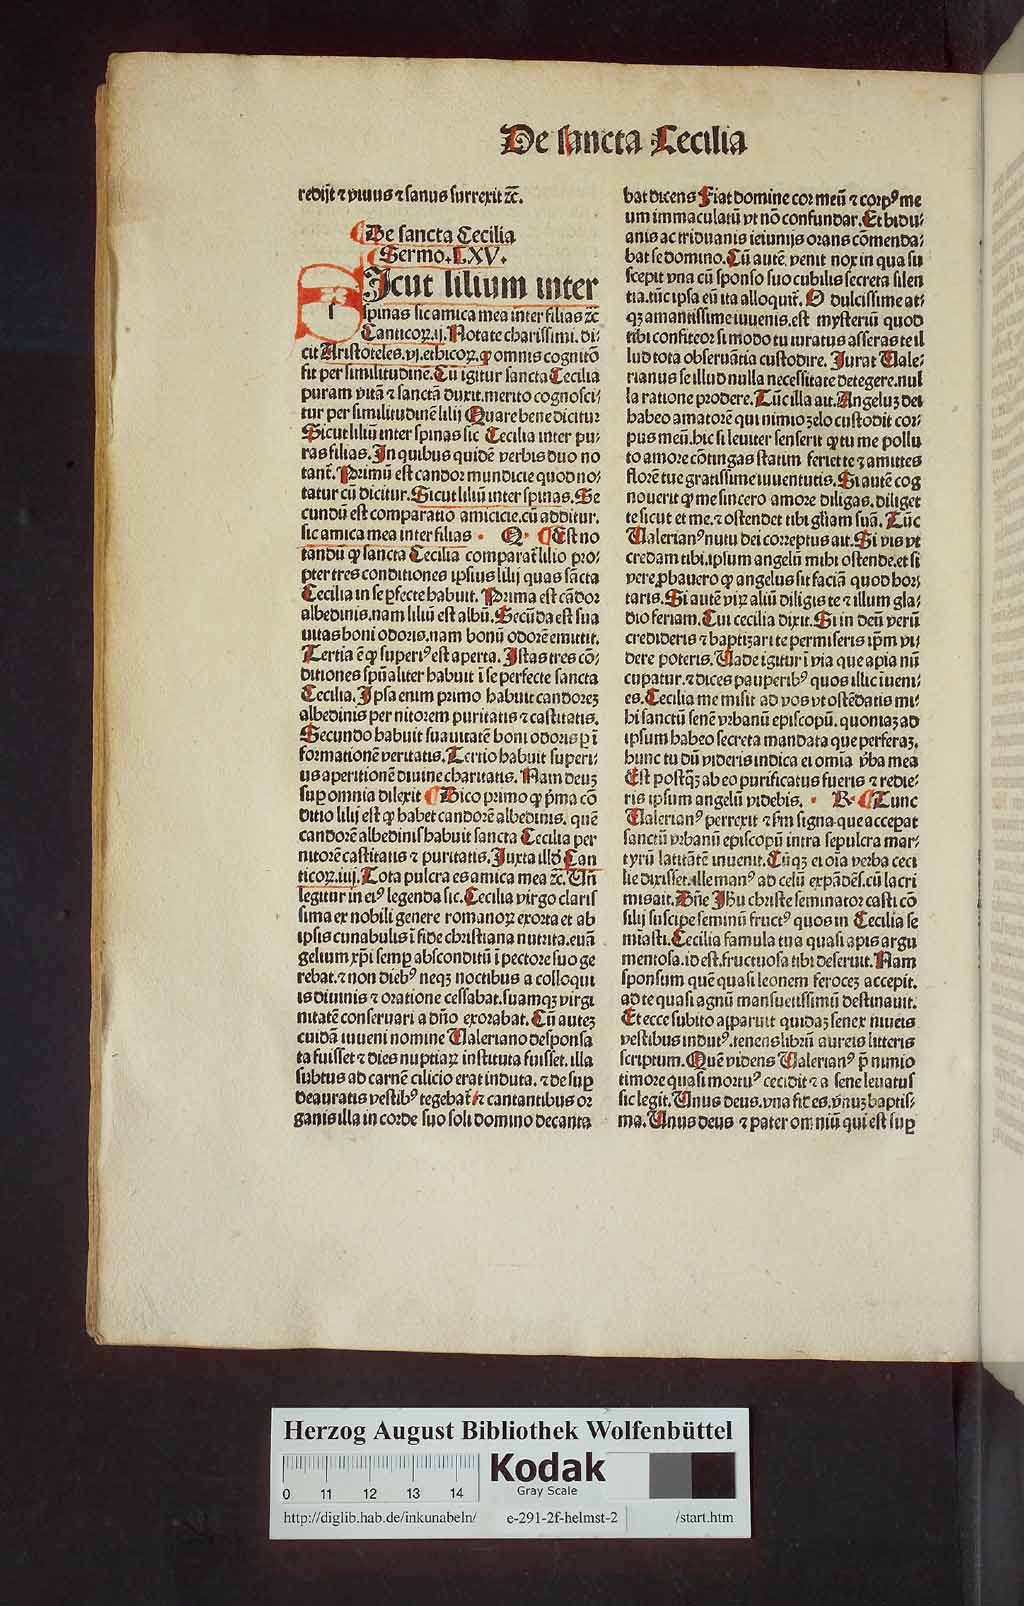 De sancta Cecilia
redijt ⁊ viuus ⁊ sanus surrexit ⁊c̄.
De sancta Cecilia
Sermo. LXV.
SIcut lilium inter
spinas sic amica mea inter filias ⁊c̄
Canticoꝝ .ij. Notate charissimi. di-
cit Aristoteles. vj. ethicoꝝ. ꝙ omnis cognitō
fit per similitudinē. Cū igitur sancta Cecilia
puram vitā ⁊ sanctā duxit. merito cognosci-
tur per similitudinē lilij Quare bene dicitur
Sicut liliū inter spinas sic Cecilia inter pu-
ras filias. In quibus quidē verbis duo no
tant᷑. Primū est candor mundicie quod no-
tatur cū dicitur. Sicut liliū inter spinas. Se
cundū est comparatio amicicie. cū additur.
sic amica mea inter filias. Q. Est no
tandū ꝙ sancta Cecilia comparat᷑ lilio pro-
pter tres conditiones ipsius lilij quas sācta
Cecilia in se ꝑfecte habuit. Prima est cādor
albedinis. nam liliū est albū. Secūda est sua
uitas boni odoris. nam bonū odorē emittit.
Tertia ē ꝙ superiꝰ est aperta. Istas tres cō-
ditiones spūaliter habuit ī se perfecte sancta
Cecilia. Ipsa enim primo habuit candorez
albedinis per nitorem puritatis ⁊ castitatis.
Secundo habuit suauitatē boni odoris ꝑ ī
formationē veritatis. Tertio habuit superi-
us aperitionē diuine charitatis. Nam deuz
suꝑ omnia dilexit Dico primo ꝙ pͥma cō
ditio lilij est ꝙ habet candorē albedinis. quē
candorē albedinis habuit sancta Cecilia per
nitorē castitatis ⁊ puritatis. Juxta illd̓ Can
ticoꝝ. iiij. Tota pulcra es amica mea ⁊c̄. Vn̄
legitur in eiꝰ legenda sic. Cecilia virgo claris
sima ex nobili genere romanoꝝ exorta et ab
ipsis cunabulis ī fide christiana nutrita. euā
gelium xp̄i semꝑ absconditū ī pectore suo ge
rebat. ⁊ non diebꝰ neqꝫ noctibus a colloqui
is diuinis ⁊ oratione cessabat. suamqꝫ virgi
nitatē conseruari a dn̄o exorabat. Cū autez
cuidā iuueni nomine Valeriano desponsa
ta fuisset ⁊ dies nuptiaꝝ instituta fuisset. illa
subtus ad carnē cilicio erat induta. ⁊ desuꝑ
deauratis vestibꝰ tegebat᷑ ⁊ cantantibus or
ganis illa in corde suo soli domino decanta
bat dicens Fiat domine cor meū ⁊ corpꝰ me
um immaculatū vt nō confundar. Et bidu-
anis ac triduanis ieiunijs orans cōmenda-
bat se domino. Cū autē. venit nox in qua su
scepit vna cū sponso suo cubilis secreta silen
tia. tūc ipsa eū ita alloquit᷑. O dulcissime at-
qꝫ amantissime iuuenis. est mysteriū quod
tibi confiteor si modo tu iuratus asseras te il
lud tota obseruātia custodire. Jurat Vale-
rianus se illud nulla necessitate detegere. nul
la ratione prodere. Tūc illa ait. Angeluz dei
habeo amatorē qui nimio zelo custodit cor-
pus meū. hic si leuiter senserit ꝙ tu me pollu
to amore cōtingas statim feriet te ⁊ amittes
florē tue gratissime iuuentutis. Si autē cog
nouerit ꝙ me sincero amore diligas. diliget
te sicut et me. ⁊ ostendet tibi gl̄iam suā. Tūc
Valerianꝰ nutu dei correptus ait. Si vis vt
credam tibi. ipsum angelū mihi ostende. et si
vere ꝓbauero ꝙ angelus sit faciā quod hor-
taris. Si autē viꝝ aliū diligis te ⁊ illum gla-
dio feriam. Cui cecilia dixit. Si in deū verū
credideris ⁊ baptizari te permiseris ip̄m vi-
dere poteris. Vade igitur ī via que apia nū
cupatur. ⁊ dices pauperibꝰ quos illic īueni-
es. Cecilia me misit ad vos vt ostēdatis mi-
hi sanctū senē vrbanū episcopū. quoniaz ad
ipsum habeo secreta mandata que perferaꝫ.
hunc tu dū videris indica ei omīa v̓ba mea
Et postqꝫ ab eo purificatus fueris ⁊ redie-
ris ipsum angelū videbis. R. Tunc
Valerianꝰ perrexit ⁊ sm̄ signa que acceperat
sanctū vrbanū episcopū intra sepulcra mar-
tyrū latitātē inuenit. Cūqꝫ ei oīa verba ceci
lie dixisset. ille manꝰ ad celū expādēs. cū lacri
mis ait. Dn̄e Jhū christe seminator casti cō
silij suscipe seminū fructꝰ quos in Cecilia se
mīasti. Cecilia famula tua quasi apis argu
mentosa. id est. fructuosa tibi deseruit. Nam
sponsum quē quasi leonem ferocez accepit.
ad te quasi agnū mansuetissimū destinauit.
Et ecce subito apparuit quidaꝫ senex niueis
vestibus indutꝰ. tenens librū aureis litteris
scriptum. Quē videns Valerianꝰ p̄ nimio
timore quasi mortuꝰ cecidit ⁊ a sene leuatus
sic legit. Unus deus. vna fides. vnuꝫ baptis-
ma. Unus deus ⁊ pater omniū qui est suꝑ
Herzog August Bibliothek Wolfenbüttel
0 11 12 13 14
Kodak
Gray Scale
http://diglib.hab.de/inkunabeln/ e-291-2f-helmst-2 /start.htm